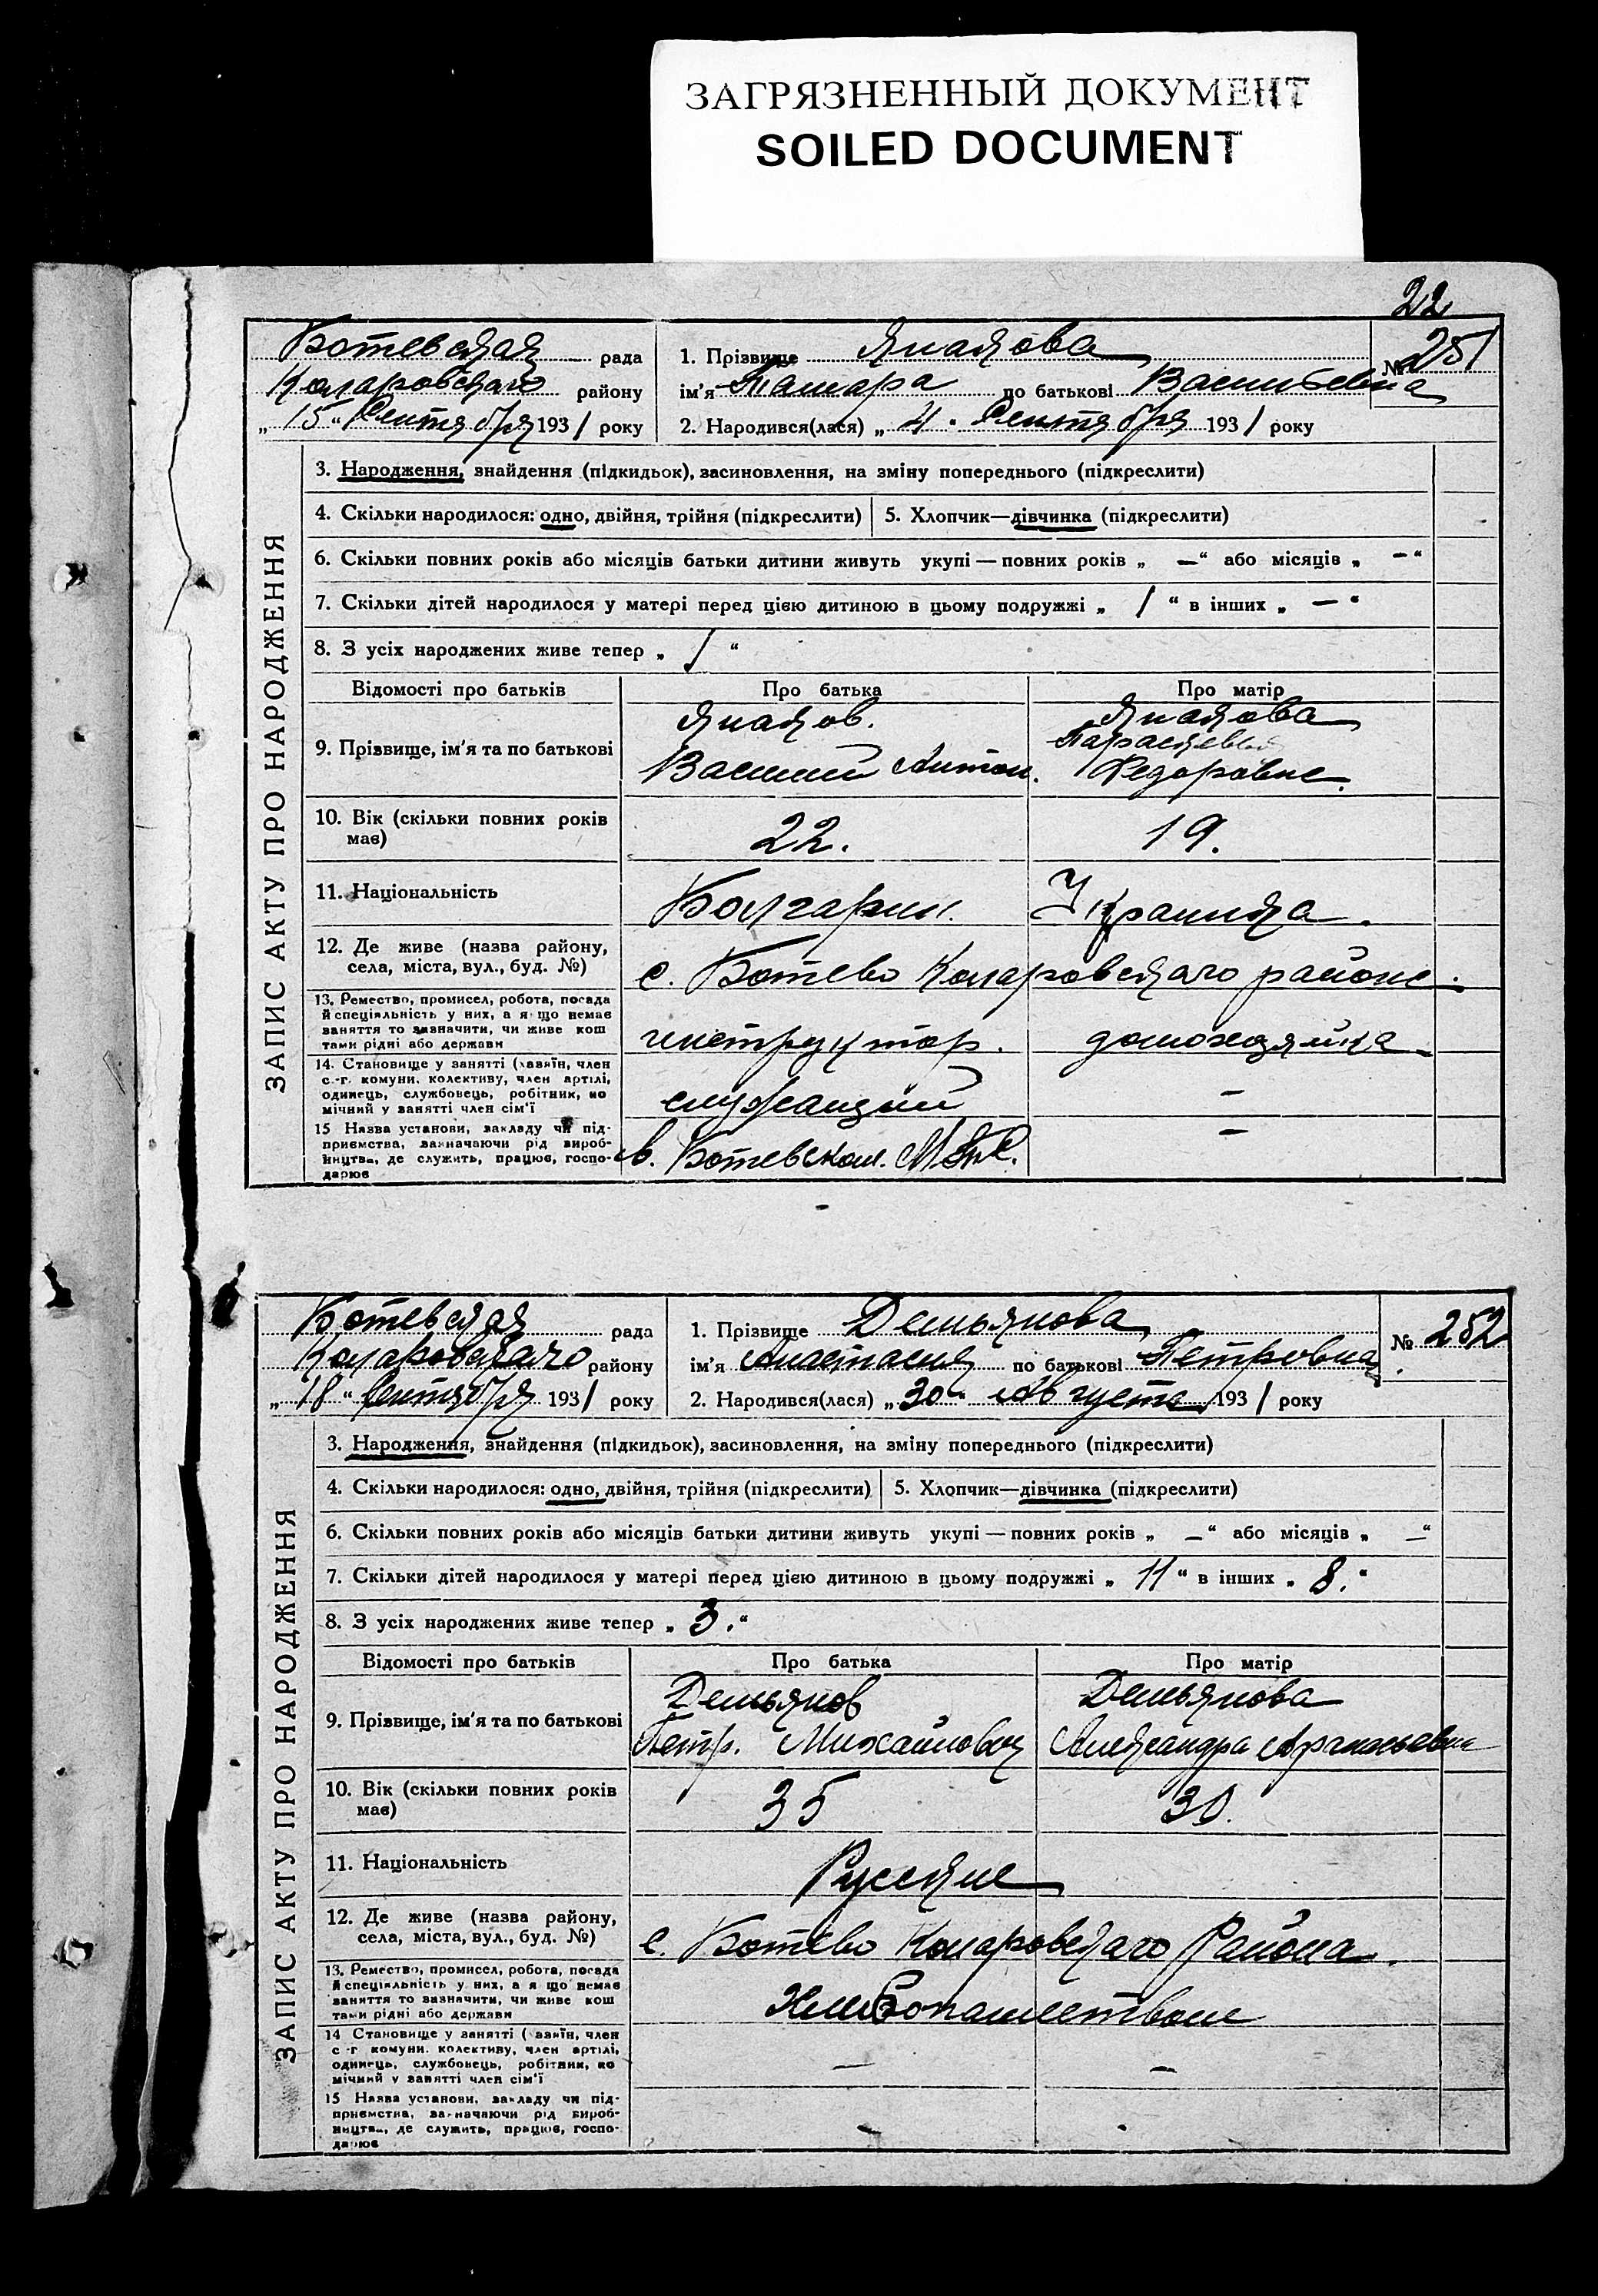 ЗАГРЯЗНЕННЫЙ ДОКУМЕНТ
SOILED DOCUMENT
22
Ботевская рада
Коларовского району
„15“ Сентября 1931 року
1. Прізвище Янакова
ім'я Тамара по батькові Васильевна
№ 251
2. Народився(лася) „4“ Сентября 1931 року
ЗАПИС АКТУ ПРО НАРОДЖЕННЯ
3. Народження, знайдення (підкидьок), засиновлення, на зміну попереднього (підкреслити)
4. Скільки народилося: одно, двійня, трійня (підкреслити) 5. Хлопчик—дівчинка (підкреслити)
6. Скільки повних років або місяців батьки дитини живуть укупі — повних років „ — “ або місяців „ — “
7. Скільки дітей народилося у матері перед цією дитиною в цьому подружжі „ 1 “ в інших „ — “
8. З усіх народжених живе тепер „ 1 “
Відомості про батьків Про батька Про матір
9. Прізвище, ім'я та по батькові
Янаков.
Василий Антон.
Янакова
Федоровна.
10. Вік (скільки повних років має) 22. 19.
11. Національність Болгарин. Украинка.
12. Де живе (назва району, села, міста, вул., буд. №)
с. Ботево Коларовского района.
13. Ремество, промисел, робота, посада
й спеціяльність у них, а я що немає
заняття то зазначити, чи живе кош
тами рідні або держави
инструктор. домохозяйка
14. Становище у занятті (хазяїн, член
с.-г. комуни, колективу, член артілі,
одинець, службовець, робітник, по
мічний у занятті член сім'ї
служащий —
15 Назва установи, закладу чи під-
приємства, зазначаючи рід вироб-
ництва, де служить, працює, госпо-
дарює
в. Ботевском. М.Т.С. —
Ботевская рада
Коларовского району
„18“ Сентября 1931 року
1. Прізвище Демьянова
ім'я Анастасия по батькові Петровна
№ 252
2. Народився(лася) „30“ Августа 1931 року
ЗАПИС АКТУ ПРО НАРОДЖЕННЯ
3. Народження, знайдення (підкидьок), засиновлення, на зміну попереднього (підкреслити)
4. Скільки народилося: одно, двійня, трійня (підкреслити) 5. Хлопчик—дівчинка (підкреслити)
6. Скільки повних років або місяців батьки дитини живуть укупі — повних років „ — “ або місяців „ — “
7. Скільки дітей народилося у матері перед цією дитиною в цьому подружжі „ 11 “ в інших „ 8. “
8. З усіх народжених живе тепер „ 3. “
Відомості про батьків Про батька Про матір
9. Прізвище, ім'я та по батькові
Демьянов
Петр. Михайлович
Демьянова
Александра
10. Вік (скільки повних років має) 35 30.
11. Національність Русские
12. Де живе (назва району, села, міста, вул., буд. №)
с. Ботево Коларовского Района.
13. Ремество, промисел, робота, посада
й спеціяльність у них, а я що немає
заняття то зазначити, чи живе кош
тами рідні або держави
Хлебопашеством
14 Становище у занятті (хазяїн, член
с-г комуни, колективу, член артілі,
одинець, службовець, робітник, по
мічний у занятті член сім'ї
— —
15 Назва установи, закладу чи під-
приємства, зазначаючи рід вироб-
ництва, де служить, працює, госпо-
дарює
—